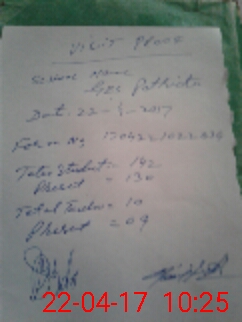 VISIT PROOF
School Name
GPS Pathrida
Date: 22-4-2017
Form No
Total Student = 142
Present = 130
Total Teacher = 10
Present = 09
22-04-17 10:25